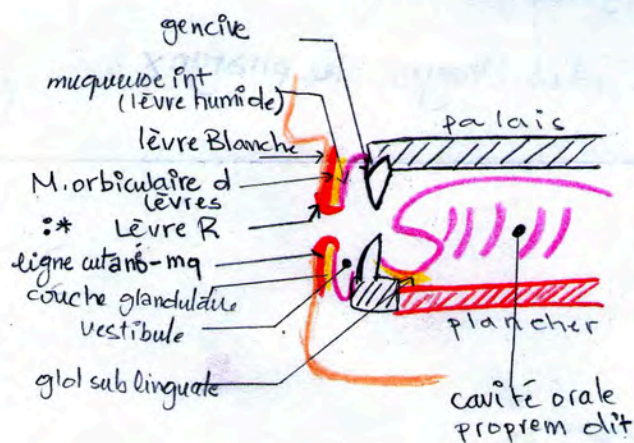 gencive
muqueuse int
(lèvre humide)
palais
lèvre Blanche
M. orbiculaire d
lèvres
:* Lèvre R
ligne cutanéo-mq
couche glandulaire
vestibule
plancher
glol sublinguale
cavité orale
proprem dit